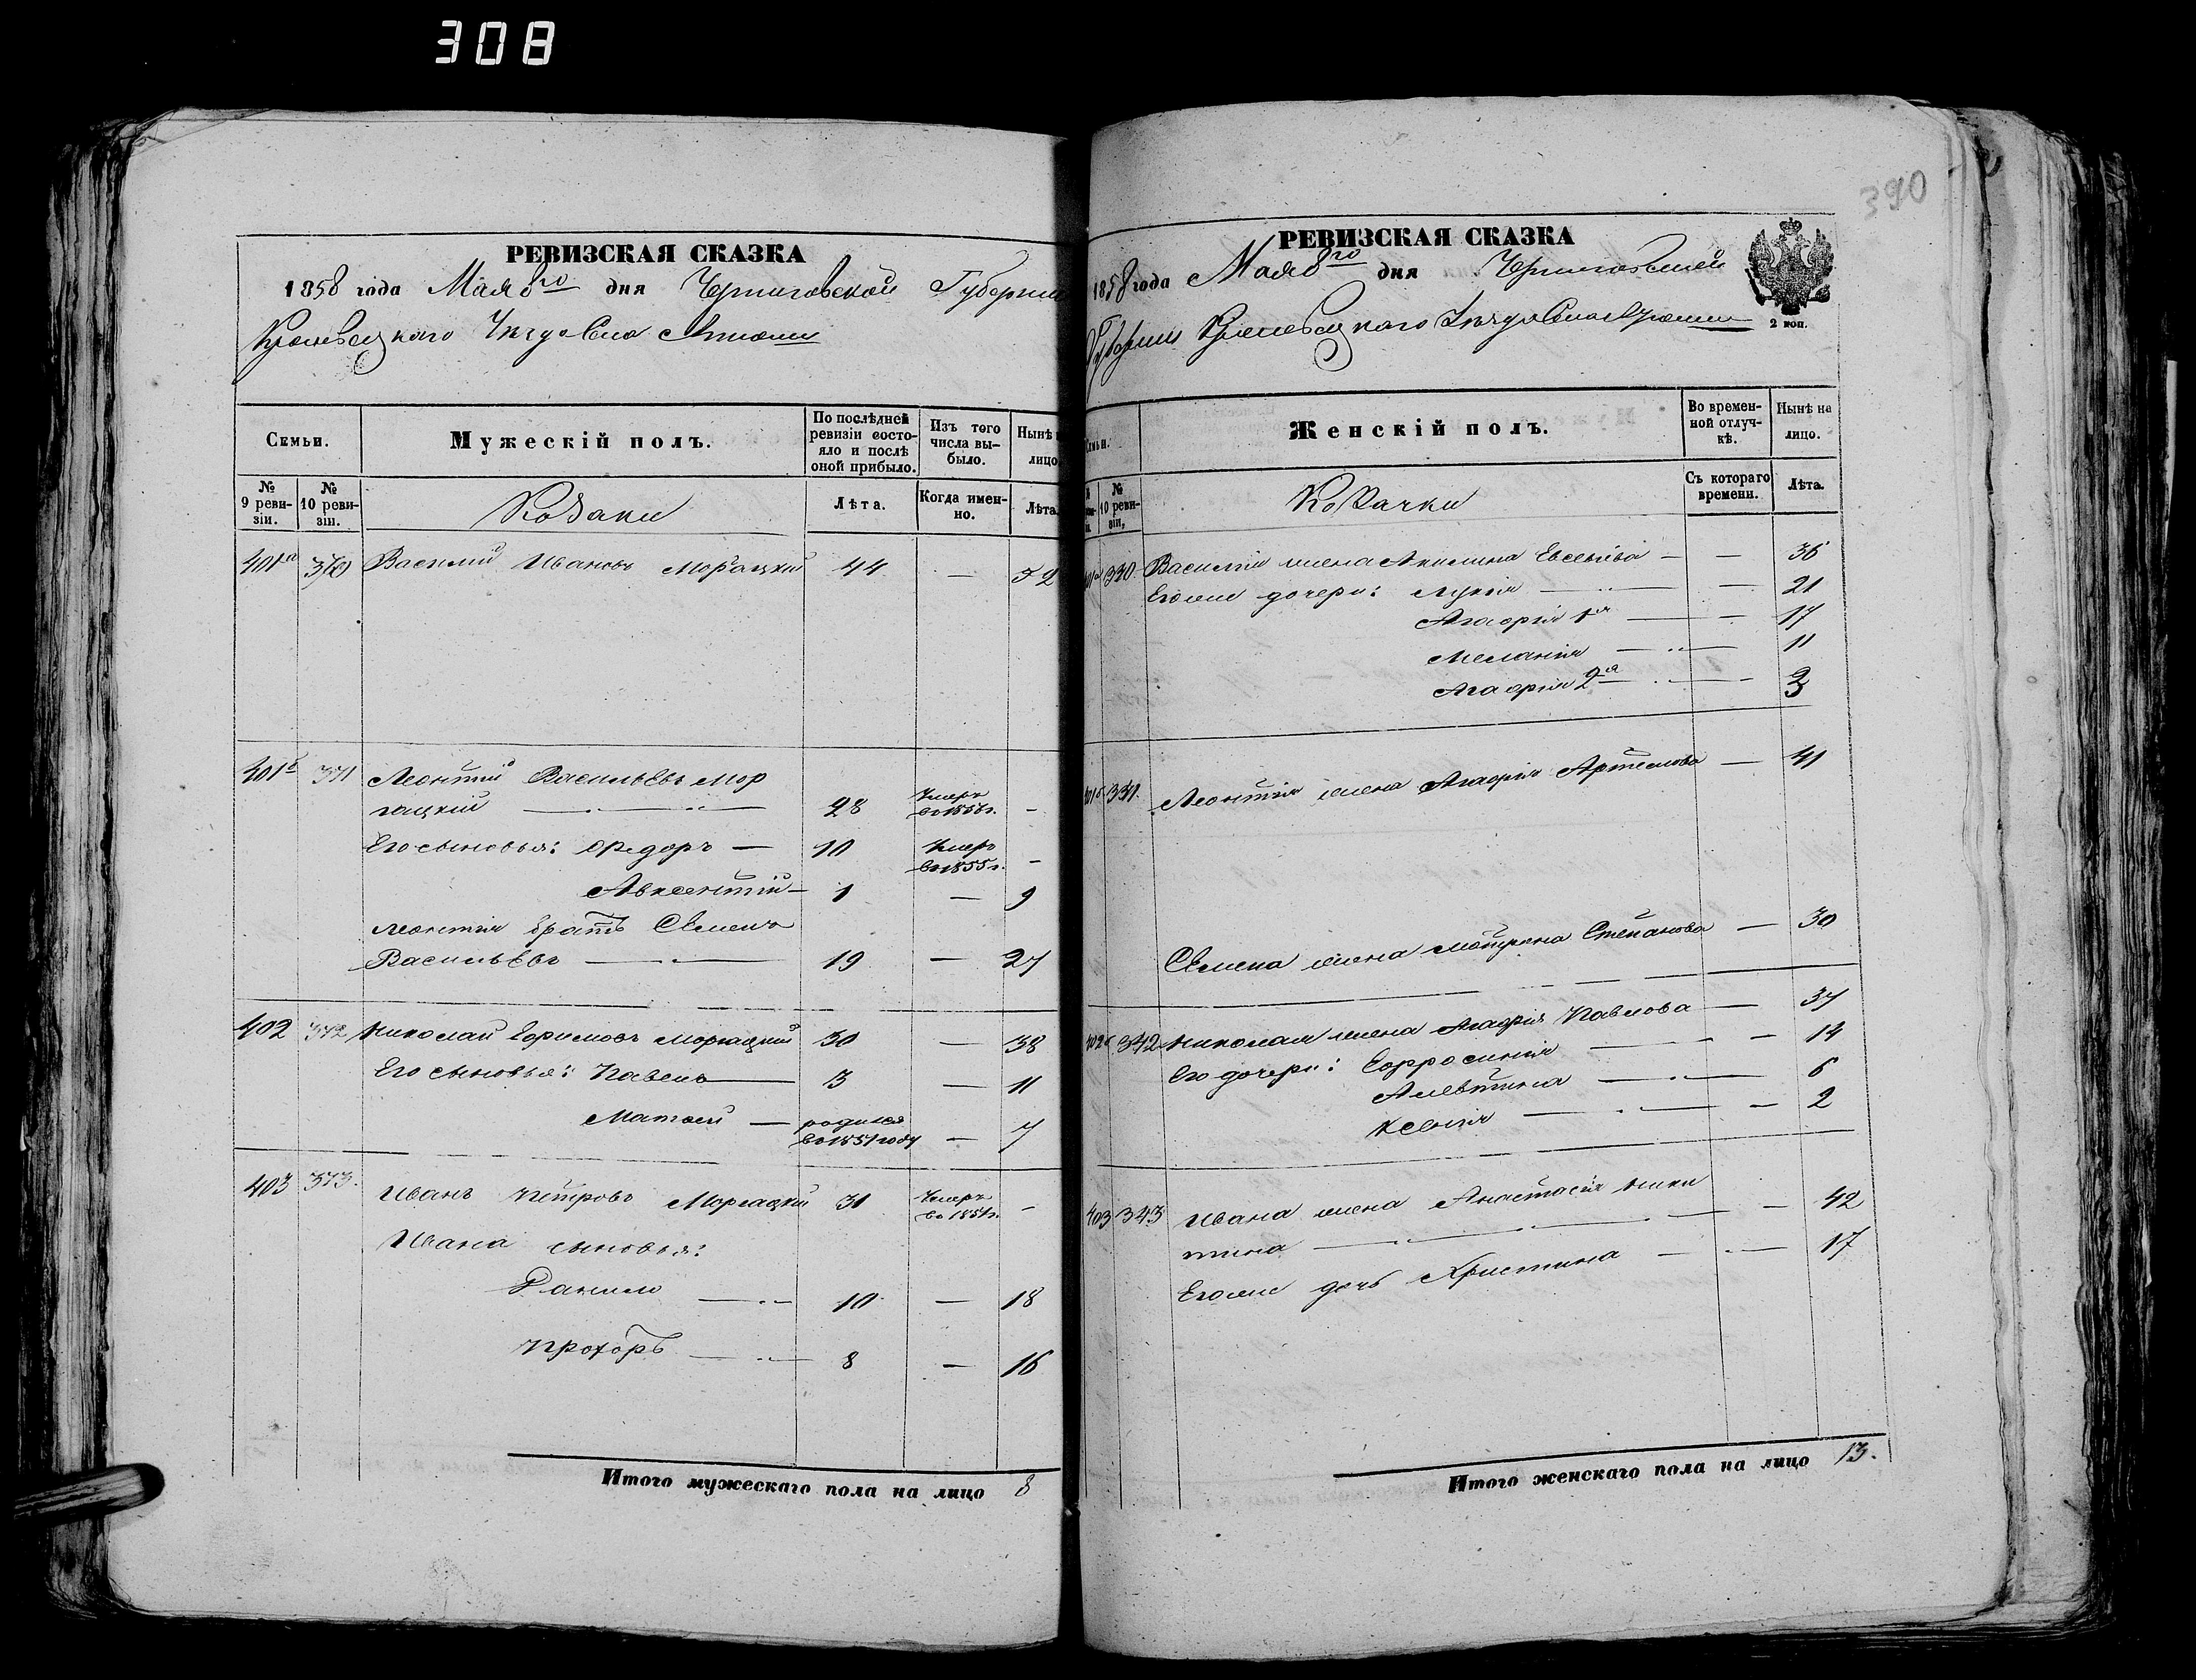 308
390
РЕВИЗСКАЯ СКАЗКА
1858 года Мая 8го дня Черниговской Губерніи
Кролевецкаго Уѣзда Села
Семьи.
Мужескій полъ.
По послѣдней ревизіи состояло и послѣ оной прибыло.
Изъ того числа выбыло.
Нынѣ
лицо
№ 9 ревизіи.
№ 10 ревизіи.
Козаки
Лѣта.
Когда именно.
Лѣта.
401а 370 Василий Ивановъ Моргацкий 44 — 52
401б 371 Леонтий Васильевъ Мор
гацкий — 28 Умеръ въ г. —
Его сыновья: Федоръ — 10 Умеръ въ 1855 г. —
Авксентий — 1 — 9
Леонтия братъ Семенъ
Васильевъ — 19 — 27
402 372 Николай Ефимовъ Моргацкий 30 — 38
Его сыновья: Павелъ — 3 — 11
Матвей — родился въ 1851 году — 7
403 373. Иванъ Петровъ Моргацкий 31 Умеръ въ г. —
Ивана сыновья:
Данило — 10 — 18
Прохоръ — 8 — 16
Итого мужескаго пола на лицо 8
РЕВИЗСКАЯ СКАЗКА
1858 года Мая 8го дня Черниговской
Губерніи Кролевецкаго Уѣзда Села
2 коп.
Женскій полъ.
Во временной отлучкѣ.
Нынѣ на лицо.
№ 10 ревизіи,
Козачки
Съ котораго времени.
Лѣта.
Василия жена Акилина Евсеева — — 36
Его же дочери: Лукия — — 21
Агафия 1я — — 17
Мелания — — 11
Агафия 2я — —
Леонтия жена Агафия Артемова — 41
Семена жена Мотрона Степанова — 30
Николая жена Агафия Павлова — 37
Его дочери: Ефросиния — — 14
Алевтина — 6
Ксения — — 2
403 343 Ивана жена Анастасия Ники
тина — — 42
Его же дочь Христина — — 17
Итого женскаго пола на лицо 13.